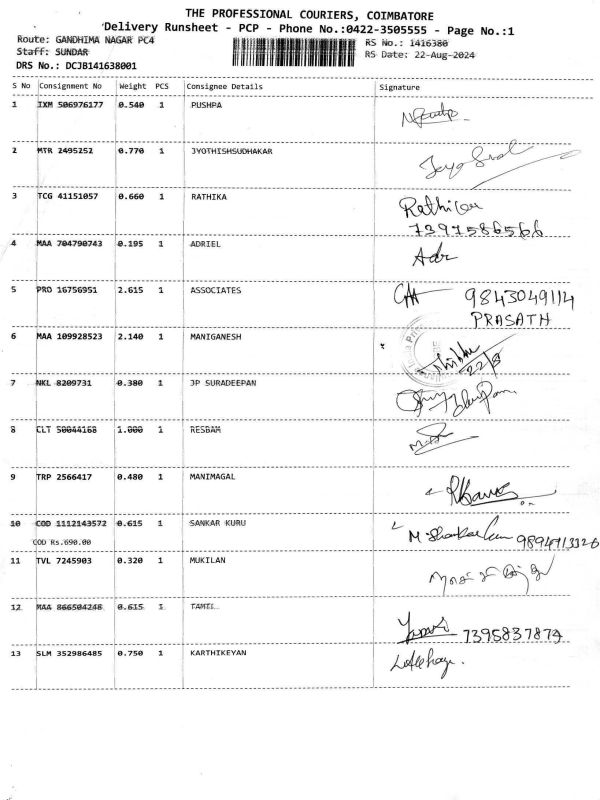 THE PROFESSIONAL COURIERS, COIMBATORE
Delivery Runsheet - PCP - Phone No.:0422-3505555 - Page No.:1
Route: GANDHIMA NAGAR PC4 RS No.: 1416380
Staff: SUNDAR RS Date: 22-Aug-2024
DRS No.: DCJB141638001
S No Consignment No Weight PCS Consignee Details Signature
1 IXM 506976177 0.540 1 PUSHPA
2 MTR 2495252 0.770 1 JYOTHISHSUDHAKAR
3 TCG 41151057 0.660 1 RATHIKA Rathika
7397586566
4 MAA 704790743 0.195 1 ADRIEL Adr
5 PRO 16756951 2.615 1 ASSOCIATES 9843049114
PRASATH
6 MAA 109928523 2.140 1 MANIGANESH
22/8
7 NKL 8209731 0.380 1 JP SURADEEPAN
8 CLT 50044168 1.000 1 RESBAM
9 TRP 2566417 0.480 1 MANIMAGAL
10 COD 1112143572 0.615 1 SANKAR KURU
COD Rs.690.00
11 TVL 7245903 0.320 1 MUKILAN
12 MAA 866504248 0.615 1 TAMIL
7395837874
13 SLM 352986485 0.750 1 KARTHIKEYAN